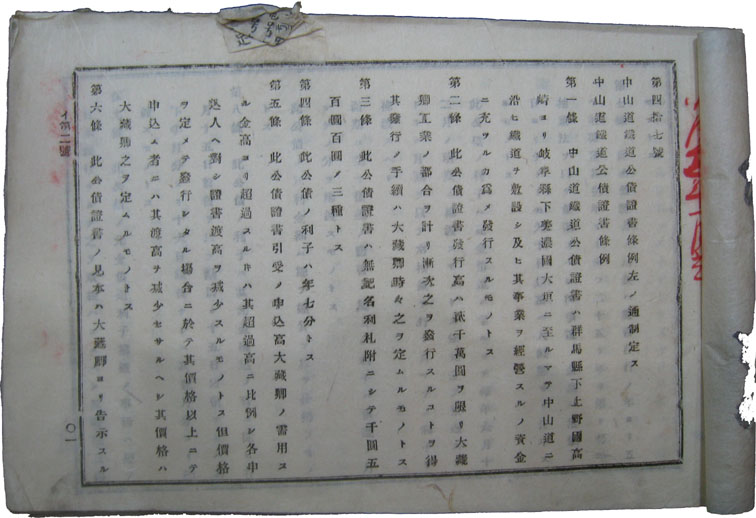 第四拾七號
中山道鐵道公債證書條例左ノ通制定ス
中山道鐵道公債證書條例
第一條 中山道鐵道公債證書ハ群馬縣下上野國高
崎ヨリ岐阜縣下美濃國大垣ニ至ルマテ中山道ニ
沿ヒ鐵道ヲ敷設シ及ヒ其事業ヲ經營スルノ資金
ニ充ツルカ爲メ發行スルモノトス
第二條 此公債證書發行高ハ貳千萬圓ヲ限リ大藏
卿工業ノ都合ヲ計リ漸次之ヲ發行スルコトヲ得
其發行ノ手續ハ大藏卿時々之ヲ定ムルモノトス
第三條 此公債證書ハ無記名利札附ニシテ千圓五
百圓百圓ノ三種トス
第四條 此公債ノ利子ハ年七分トス
第五條 此公債證書引受ノ申込高大藏卿ノ需用ス
ル金高ヨリ超過スル𪜈ハ其超過高ニ比例シ各申
込人ヘ對シ證書渡高ヲ减少スルモノトス但價格
ヲ定メテ發行シタル場合ニ於テ其價格以上ニテ
申込ム者ニハ其渡高ヲ减少セサルヘシ其價格ハ
大藏卿之ヲ定ムルモノトス
第六條 此公債證書ノ見本ハ大藏卿ヨリ告示スル
イ第二號
〇一